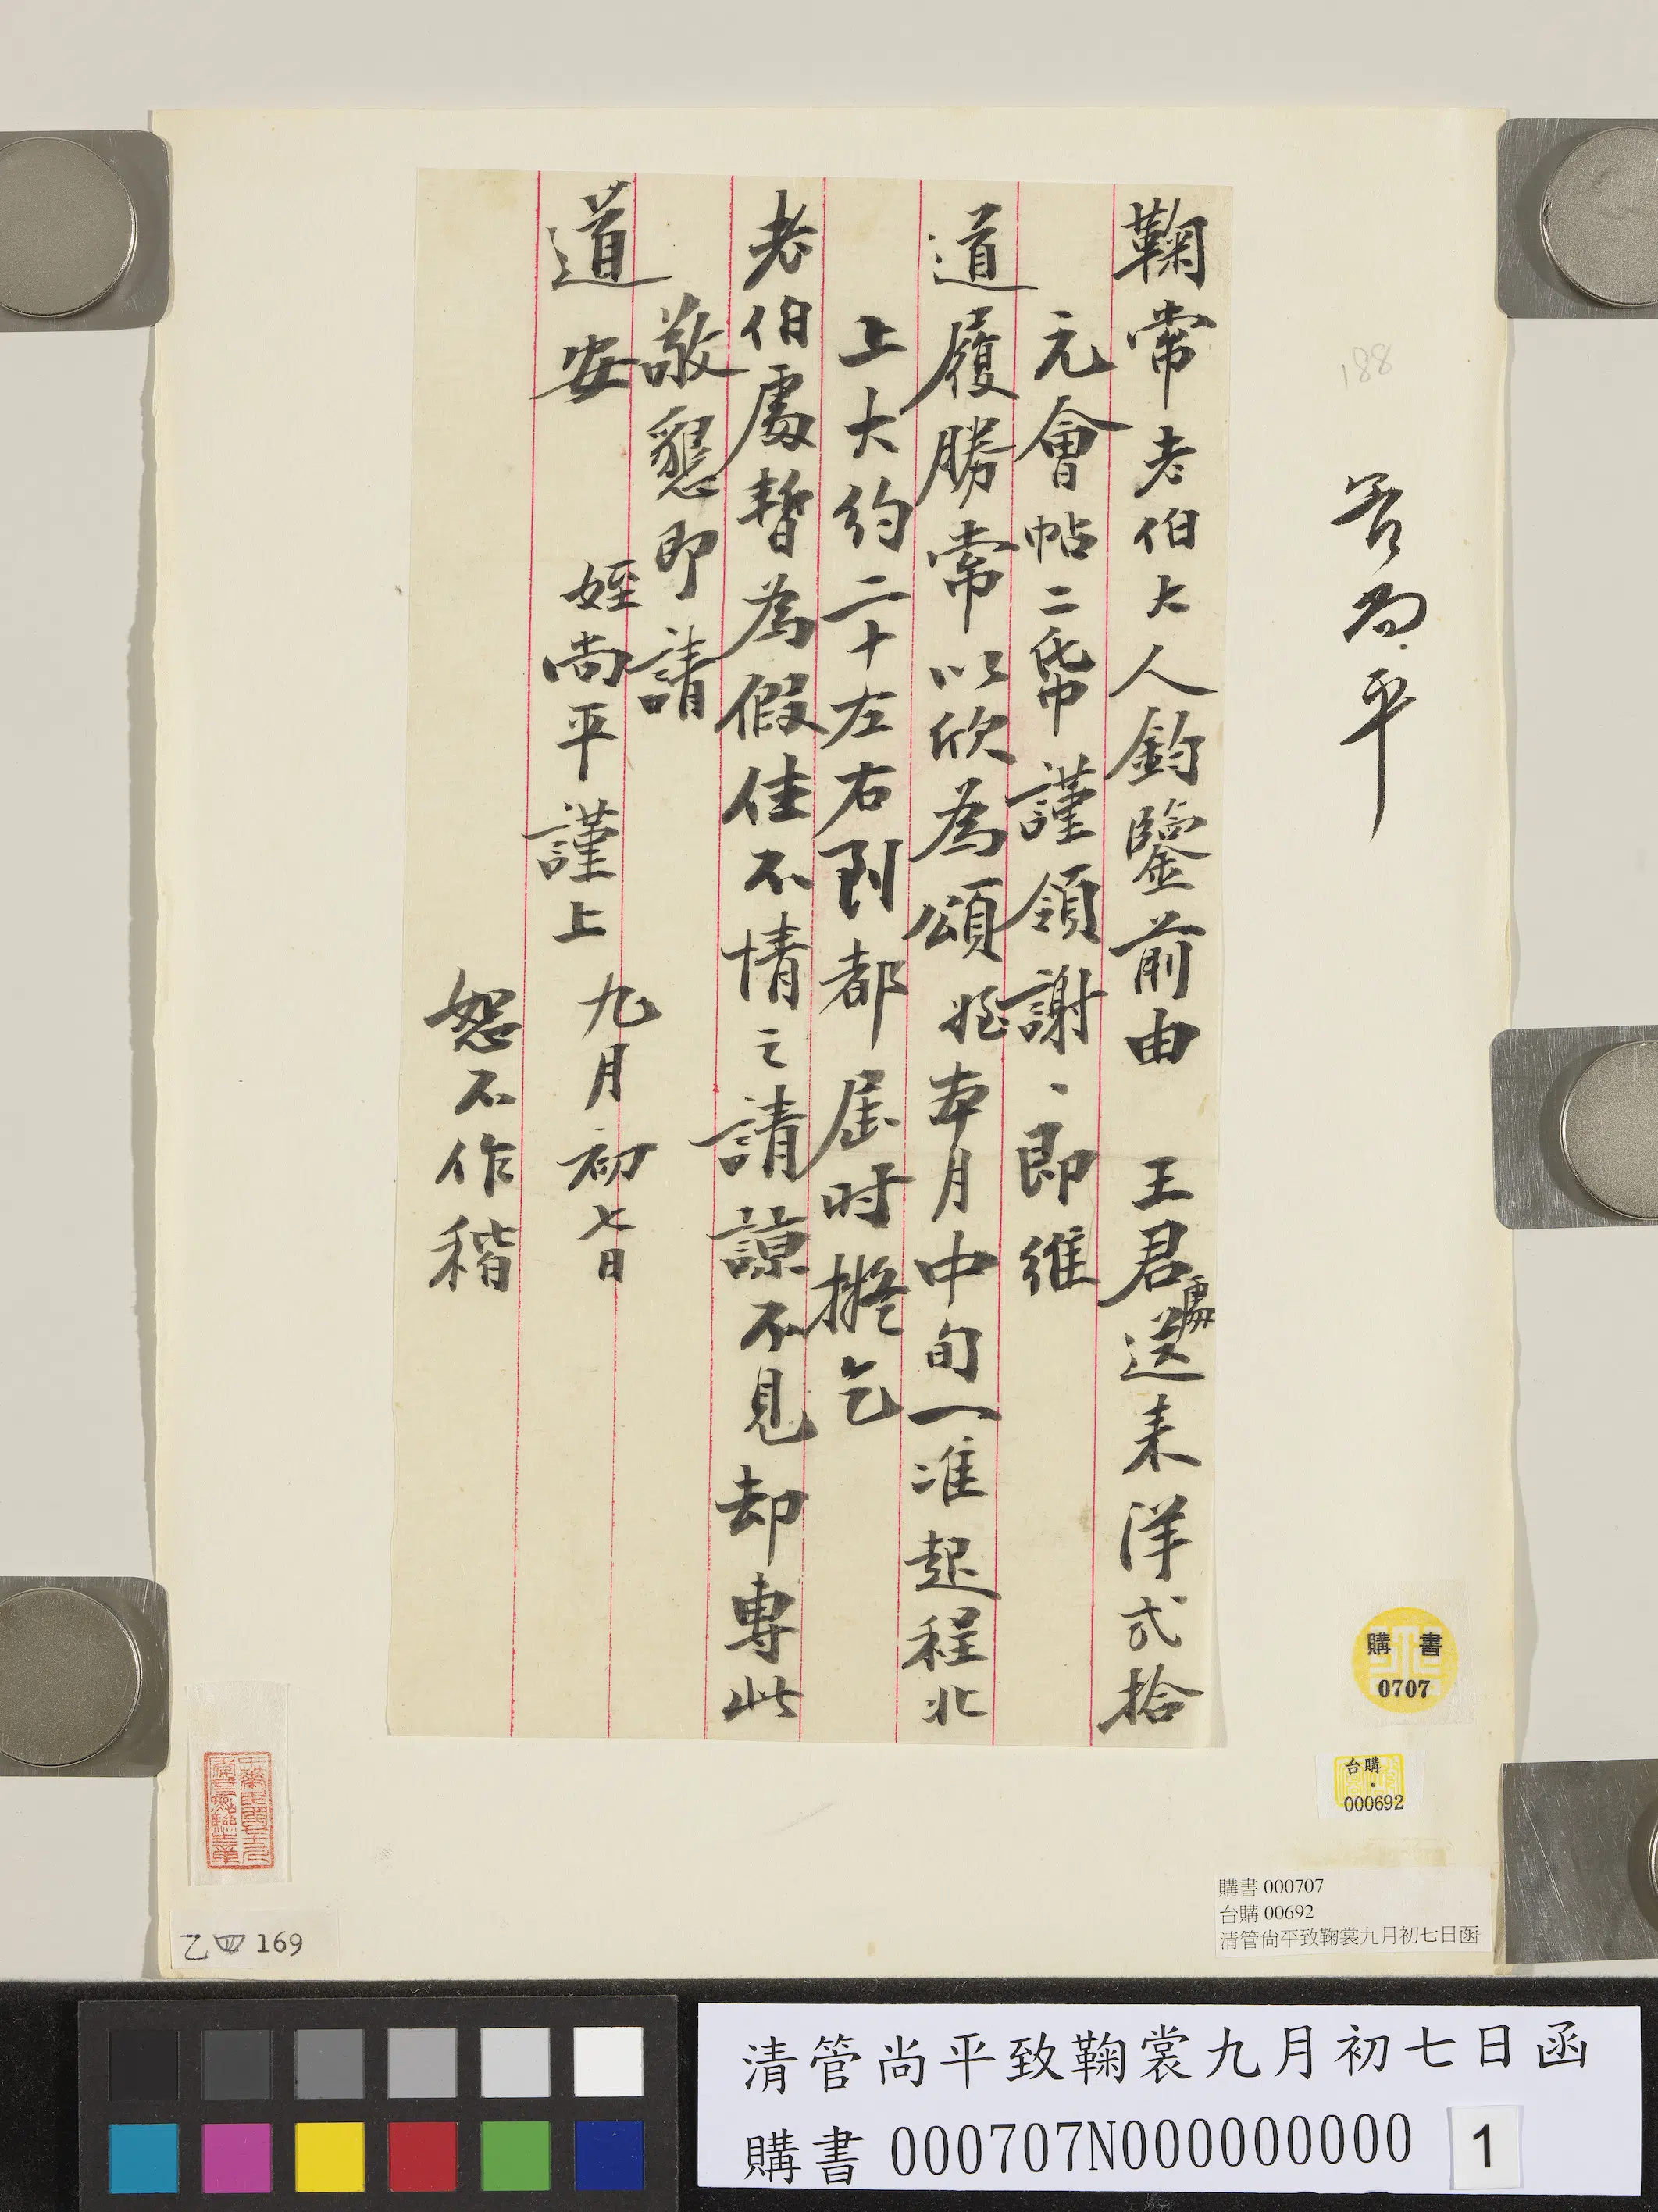 鞠常老伯大人鈞鑒前由 王君處送来洋弍拾
元會帖二帋謹領謝、即維
道履勝常以欣為頌姪本月中旬一准起程北
上大約二十左右到都屆时擬乞
老伯處暫為假住不情之請諒不見却專此
敬懇即請
道安
姪尚平謹上 九月初七日
恕不作楷
管尚平
188
購書
0707
台購
000692
購書 000707
台購 00692
清管尙平致鞠裳九月初七日函
乙四 169
清管尚平致鞠裳九月初七日函
購書 000707N000000000 1